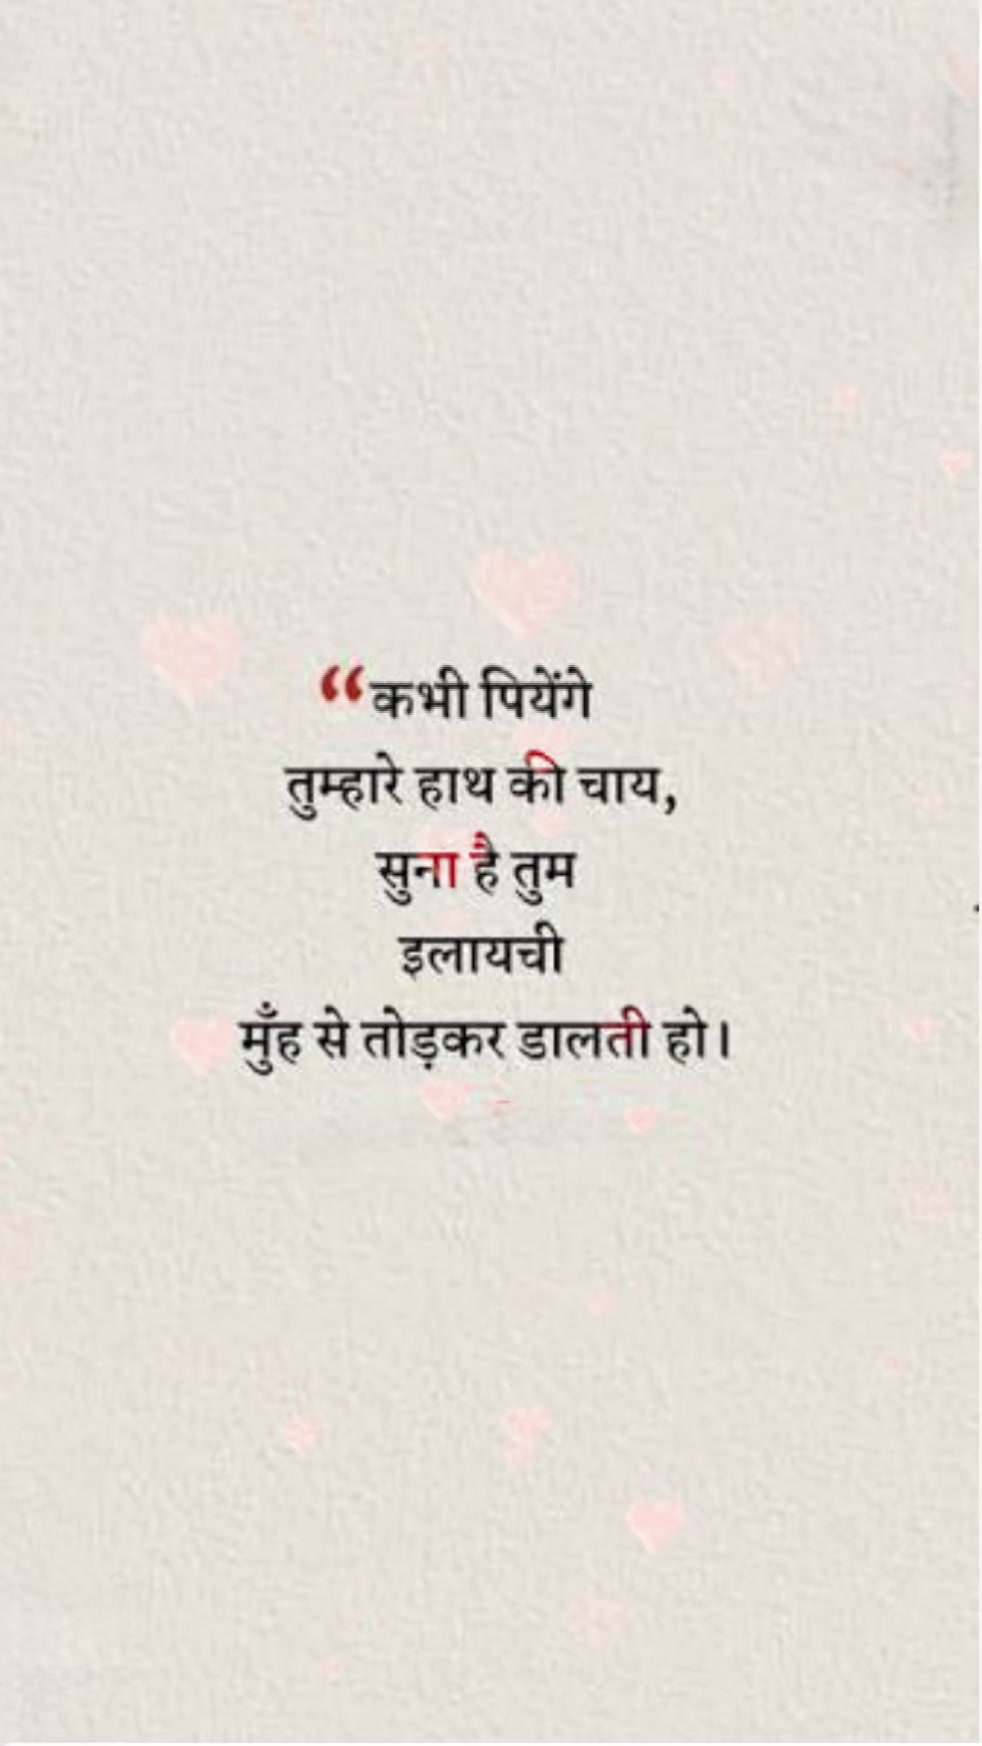 “कभी पियेंगे
तुम्हारे हाथ की चाय,
सुना है तुम
इलायची
मुँह से तोड़कर डालती हो।